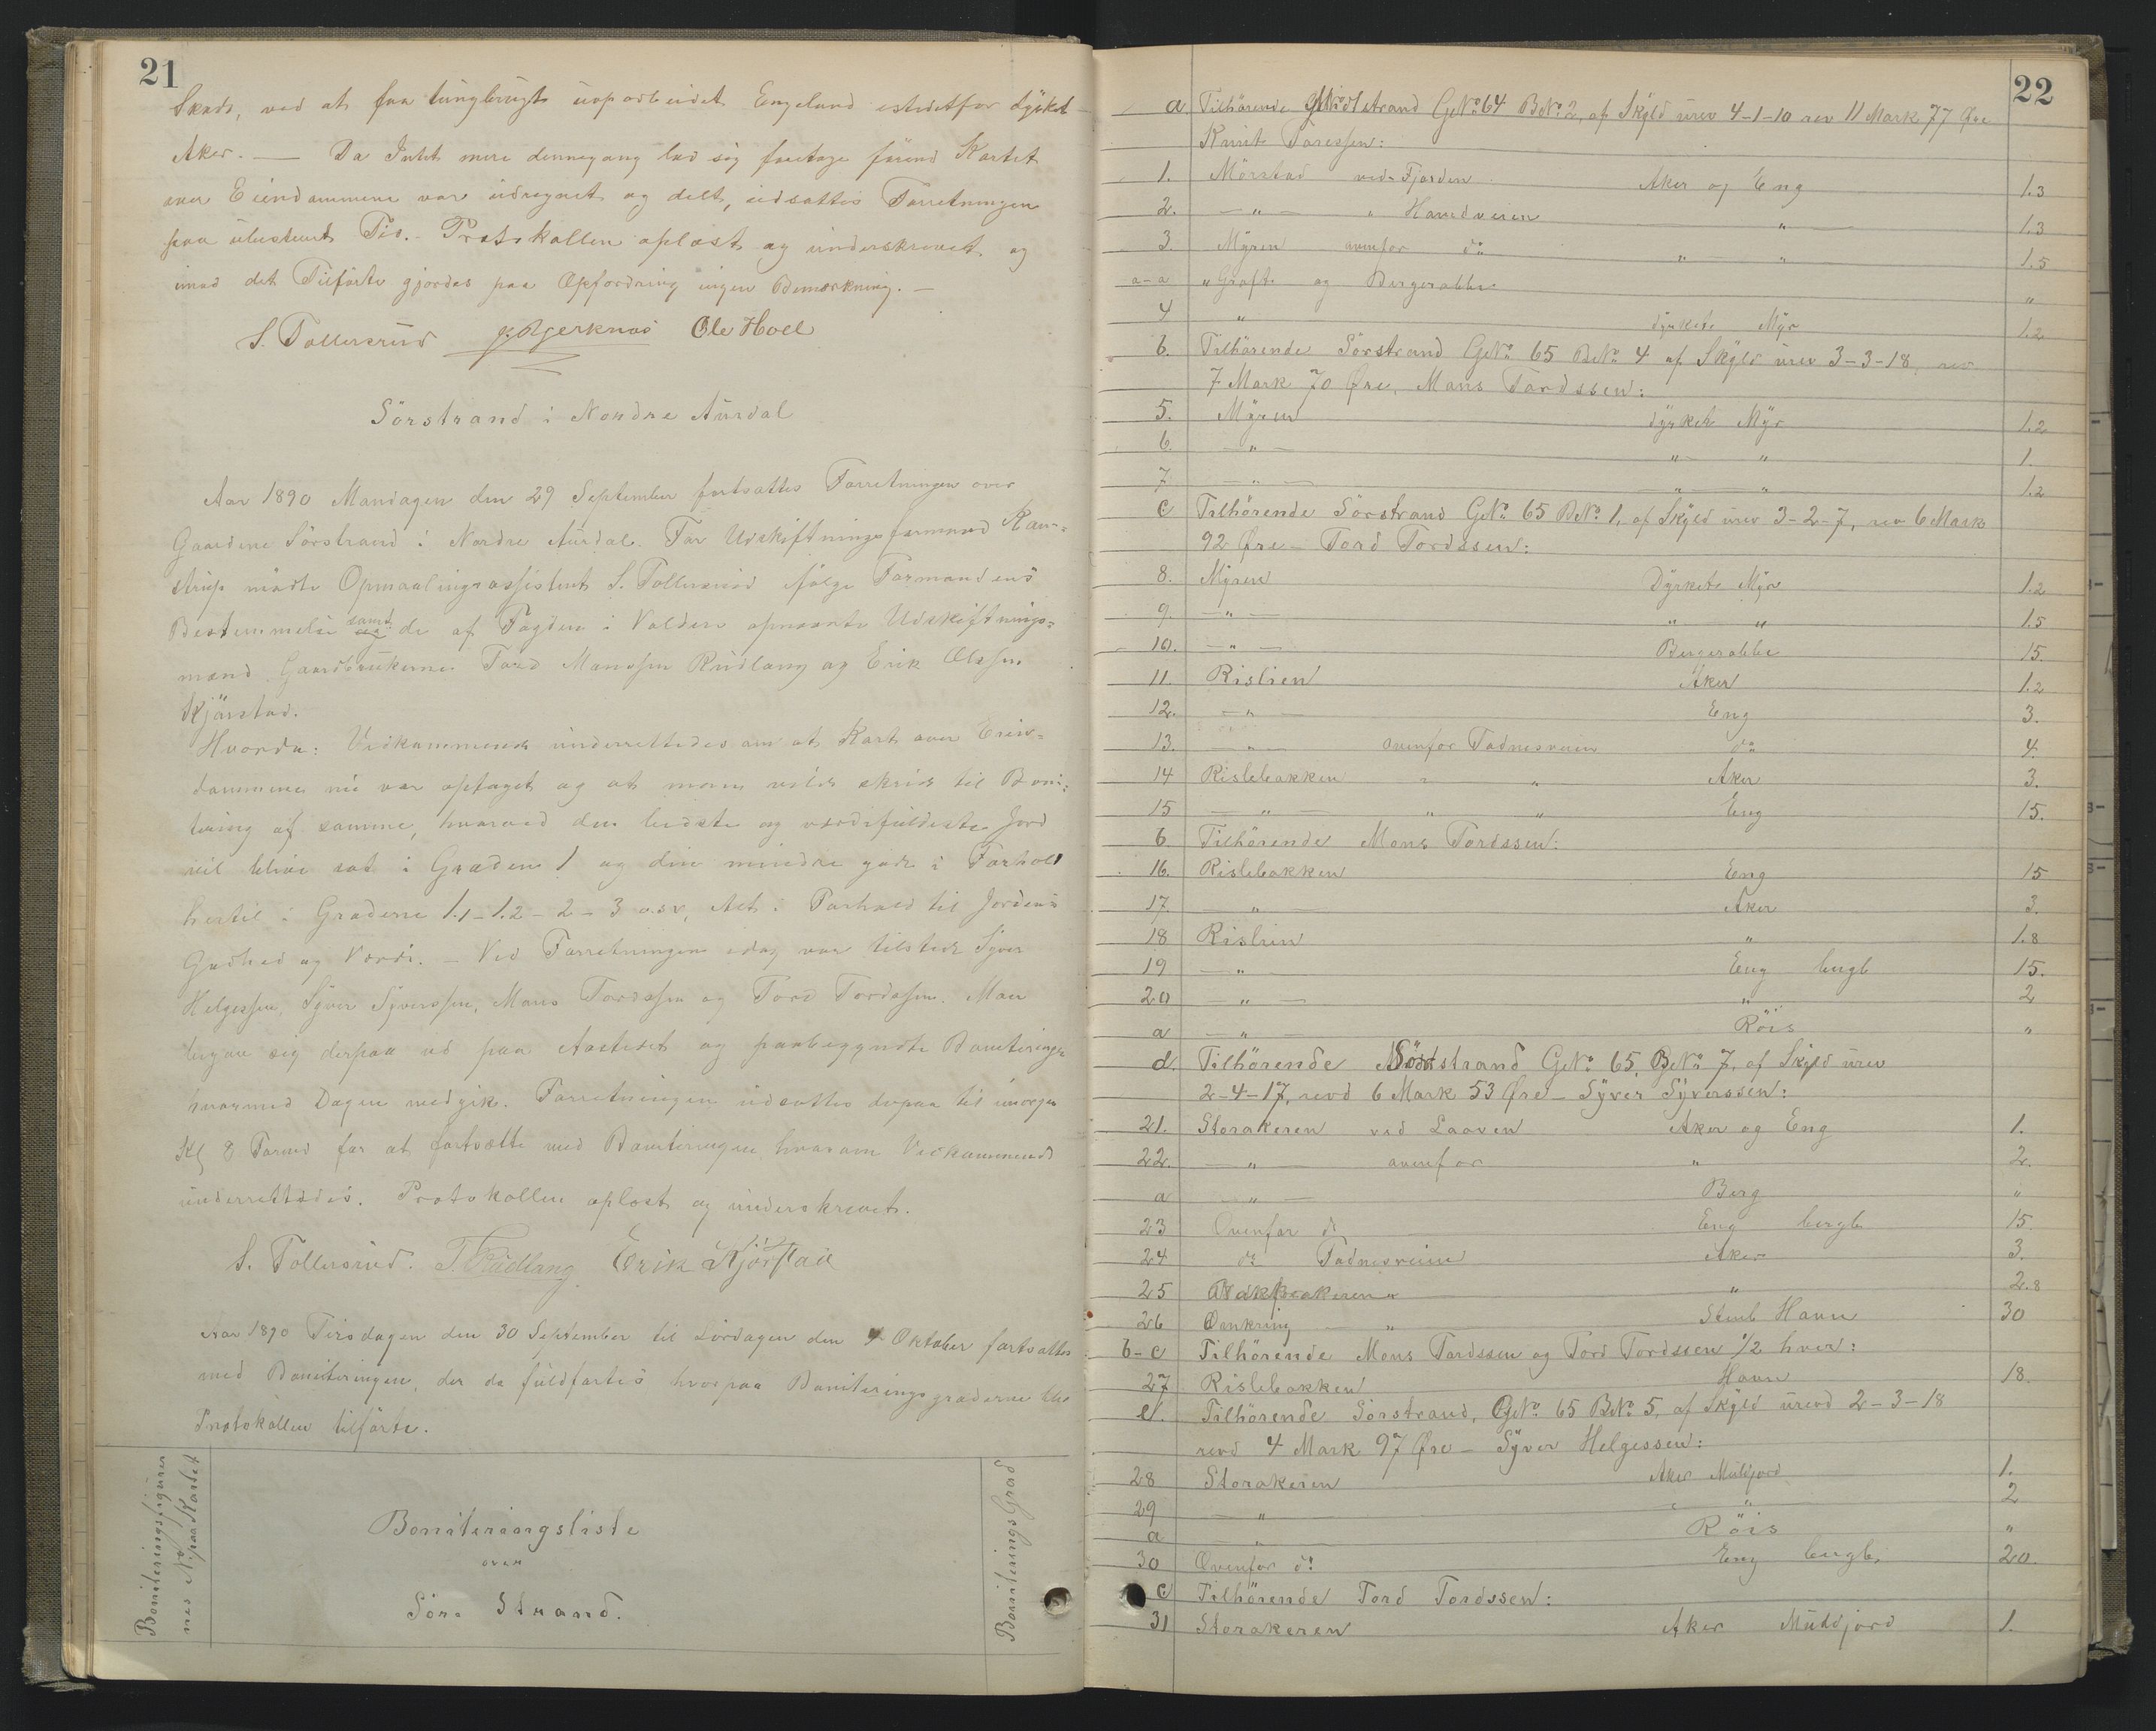 21
Skade, ved at faa tungbrugt uoparbeidet Engeland istedetfor dyrket
Aker. — Da Intet mere dennegang lod sig foretage førend Kartet
over Eiendommene var udregnet og delt, udsattes Forretningen
paa ubestemt Tid. - Protokollen oplæst og underskrevet og
imod det Tilførte gjordes paa Opfordring ingen Bemærkning. —
S. Tollersrud Ole Hoel
Sörstrand i Nordre Aurdal
Aar 1890 Mandagen den 29 September fortsattes Forretningen over
Gaardene Sörstrand i Nordre Aurdal. For Udskiftningsformand Ram=
strup mödte Opmaalingsassistent S. Tollersrud ifølge Formandens
Bestemmelse samt de af Fogden i Valders opnævnte Udskiftnings=
mænd Gaardbrukerne Tord Monssen Rudlang og Erik Olssen
Kjörstad.
Hvorda: Vedkommende underrettedes om at Kart over Eien=
dommene nu var optaget og at man vilde skride til Boni=
tering af samme, hvorved den bedste og værdifuldeste Jord
vil blive sat i Graden 1 og den mindre gode i Forhold
hertil i Graderne 1.1 - 1.2 - 2 - 3 o.s.v, Alt i Forhold til Jordens
Godhed og Værdi. - Ved Forretningen idag var tilstede Syver
Helgessen, Syver Syverssen, Mons Tordssen og Tord Tordssen. Man
begav sig derpaa ud paa Aastedet og paabegyndte Boniteringen
hvormed Dagen medgik. Forretningen udsattes derpaa til imorgen
Kl 8 Formd for at fortsætte med Boniteringen hvorom Vedkommende
underrettedes. Protokollen oplæst og underskrevet.
S. Tollersrud. T. Rudlang Erik Kjørstad
Aar 1890 Tirsdagen den 30 September til Lördagen den 4 Oktober fortsattes
med Boniteringen, der da fuldførtes hvorpaa Boniteringsgraderne blev
Protokollen tilførte.
Boniteringsfigurer
nes No paa Kartet
Boniteringsliste
over
Söre Strand.
BoniteringsGrad
22
a Tilhörende Nordstrand GNo 64 BNo 2, af Skyld urev 4-1-10 rev 11 Mark 77 Øre
Knut Toressen:
1. Mörstad ved Fjorden Aker og Eng 1.3
2. — " — " Hovedveien " 1.3
3. Myren ovenfor do " " 1.5
a-a " Grøft og Bergerabbe "
4 " dyrket Myr 1.2
b. Tilhörende Sörstrand GNo 65 BNo 4 af Skyld urev 3-3-18, rev
7 Mark 70 Øre, Mons Tordssen:
5. Myren dyrket Myr 1.2
6. — " — " " 1.
7 — " — " " 1.2
c Tilhörende Sörstrand GNo 65 BNo 1, af Skyld urev 3-2-7, rev 6 Mark
92 Øre - Tord Tordssen:
8. Myren Dyrket Myr 1.2
9. — " — " " 1.5
10. — " — Bergerabbe 15.
11. Rislien Aker 1.2
12. — " — Eng 3.
13. — " — ovenfor Fodnesveien do 4.
14 Rislebakken " " Aker 3.
15 — " — " " Eng 15.
b Tilhörende Mons Tordssen:
16. Rislebakken Eng 15
17. — " — Aker 3.
18 Rislien " 1.8
19 — " — Eng bergl 15.
20 — " — " 2
a — " — Röis "
d. Tilhörende Sörstrand GNo 65, BNo 7, af Skyld urev
2-4-17, revd 6 Mark 53 Øre - Syver Syverssen:
21. Storakeren ved Laaven Aker og Eng 1.
22. — " — ovenfor " 2.
a — " — Berg "
23 Ovenfor do Eng bergl 15.
24 do Fodnesveien Aker 3.
25 " " 2.8
26 Omkring " Stenb Havn 30
b-c Tilhörende Mons Tordssen og Tord Tordssen 1/2 hver:
27 Rislebakken Havn 18.
e. Tilhörende Sörstrand, GNo 65 BNo 5, af Skyld urevd 2-3-18
revd 4 Mark 97 Øre - Syver Helgessen:
28 Storakeren Aker Muldjord 1.
29 — " — " 2
a — " — Röis "
30 Ovenfor do Eng bergl. 20.
c Tilhörende Tord Tordssen:
31 Storakeren Aker Muldjord 1.